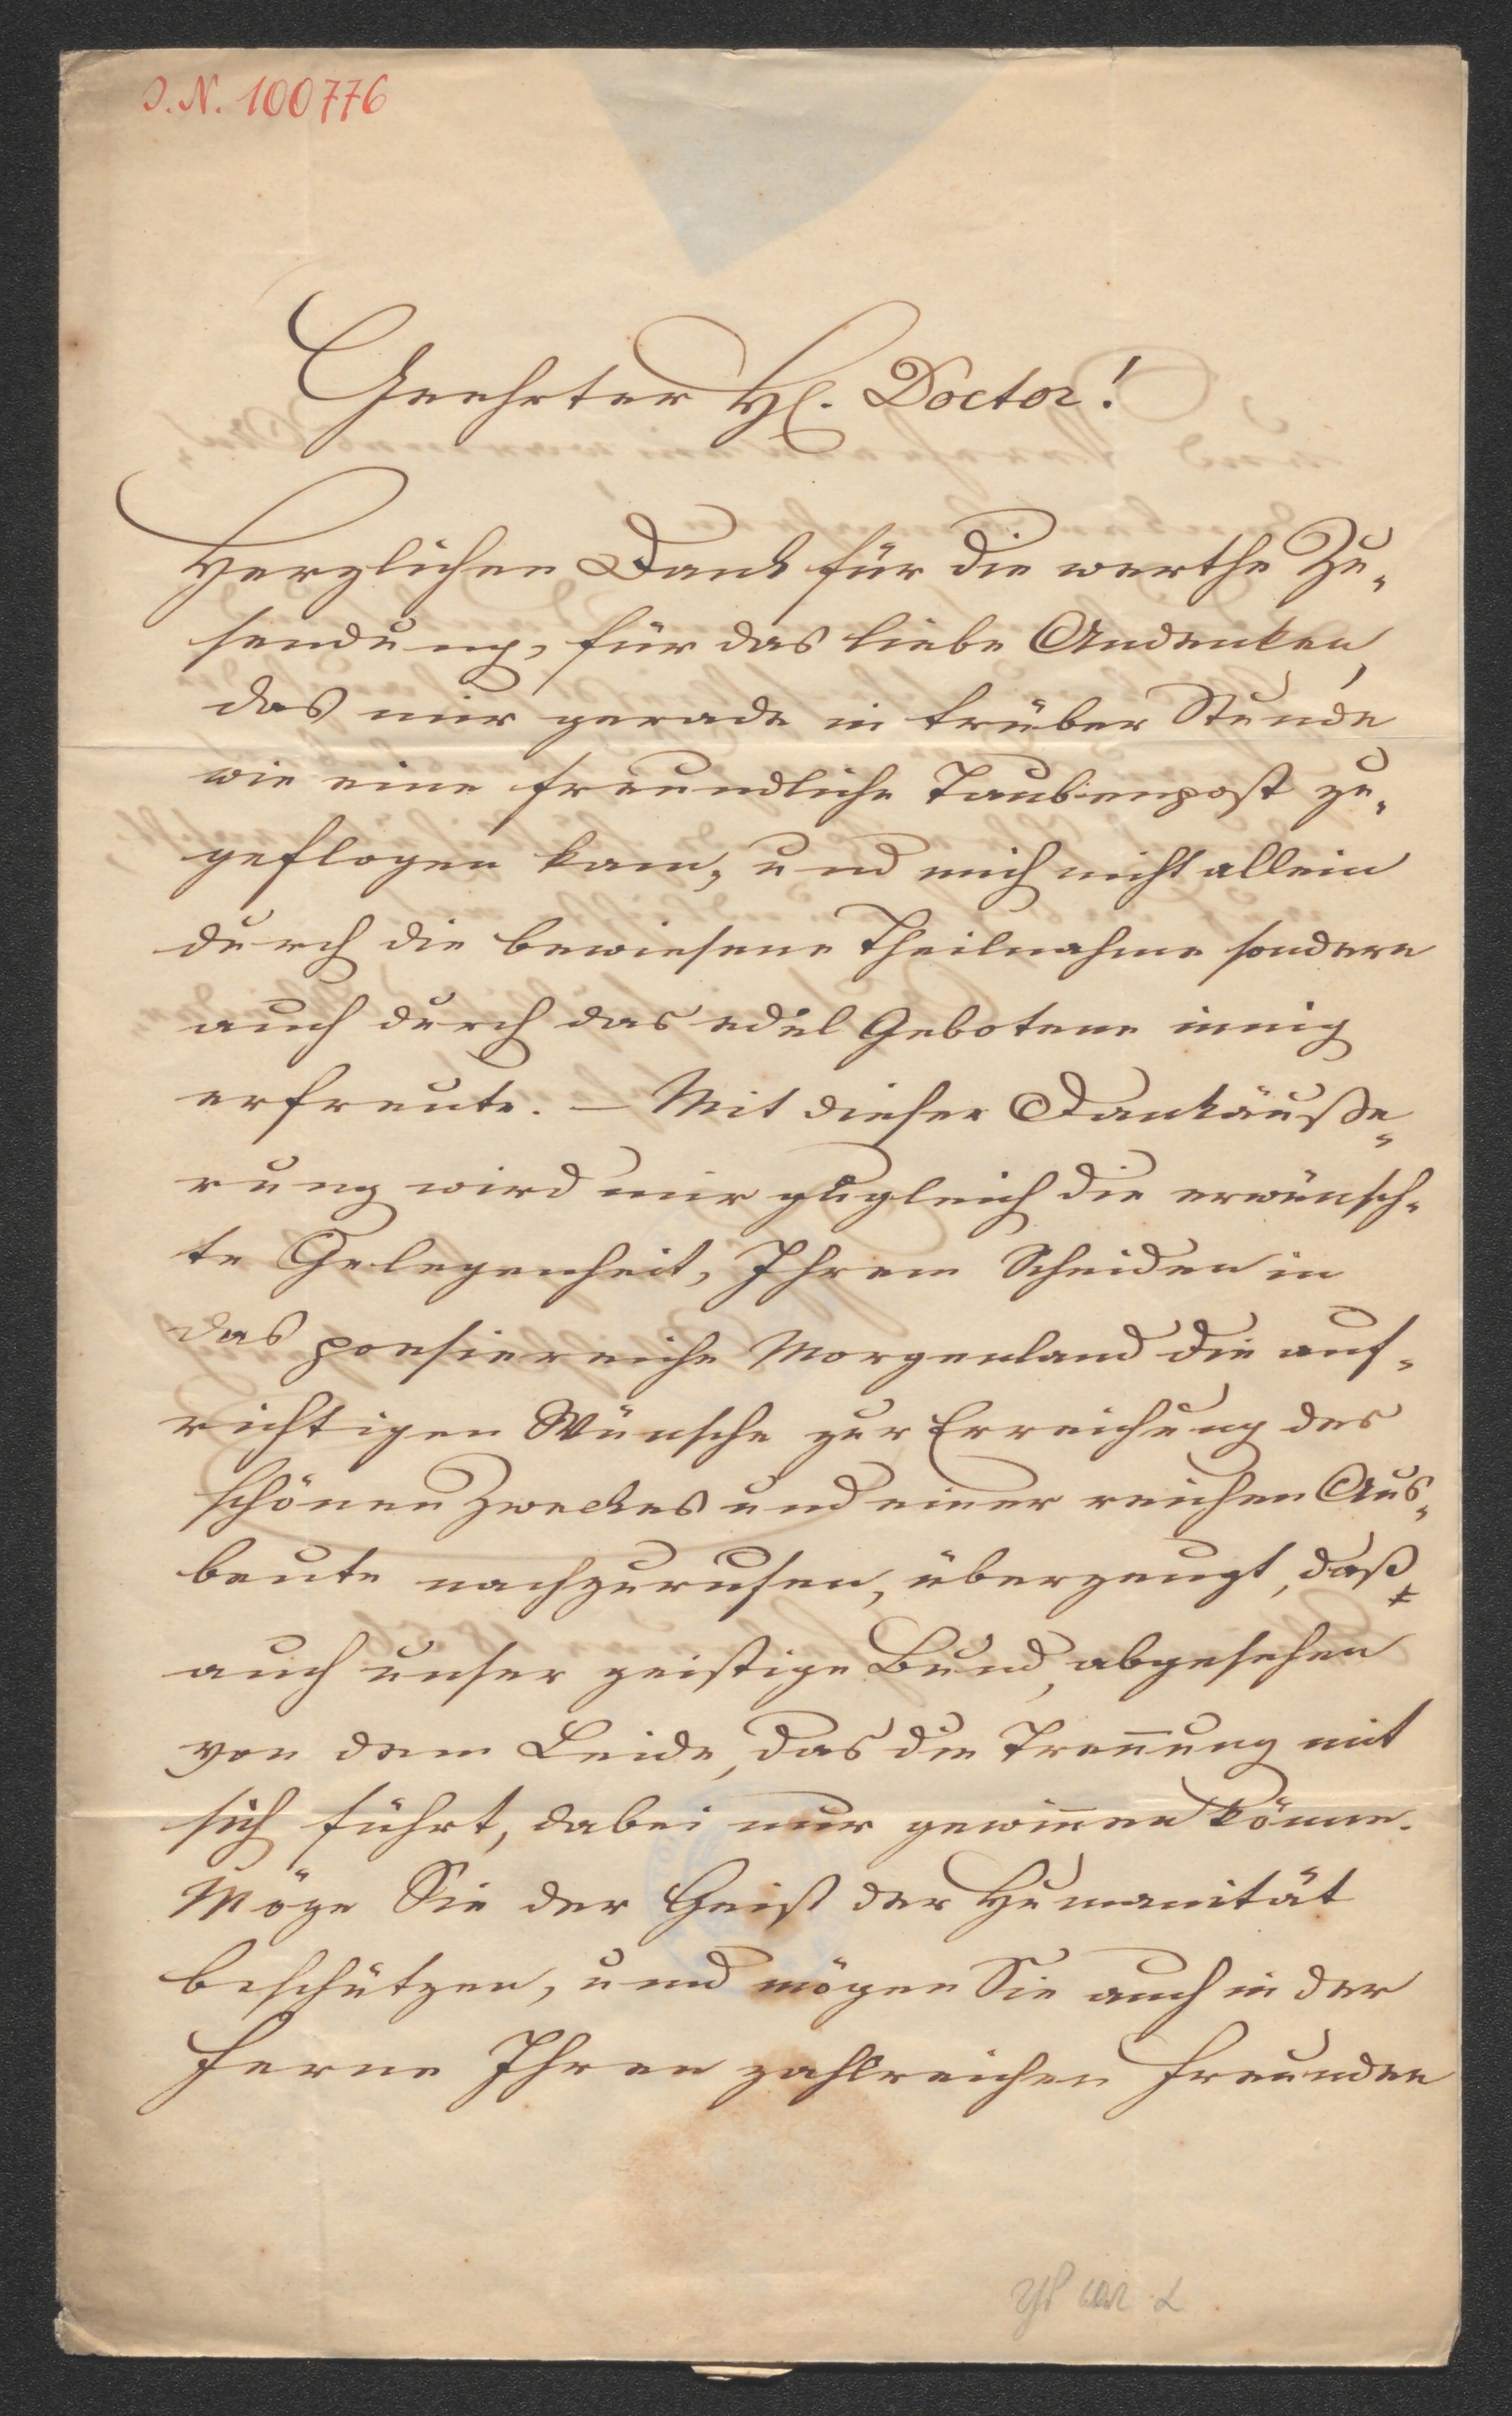 I.N. 100776
Geehrter H. Doctor!
Herzlichen Dank für die werthe Zu-
sendung, für das liebe Andenken,
das mir gerade in trüber Stunde
wie eine freundliche Taubenpost zu-
geflogen kam, und mich nicht allein
durch die bewiesene Theilnahme sondern
auch durch das edel Gebotene innig
erfreute. – Mit dieser Dankäuße-
rung wird mir zugleich die erwünsch-
te Gelegenheit, Ihrem Scheiden in
das poesiereiche Morgenland die auf-
richtigen Wünsche zur Erreichung des
schönen Zweckes und einer reichen Aus-
beute nachzurufen, überzeugt, daß
auch unser geistige Bund, abgesehen
von dem Leide, das die Trennung mit
sich führt, dabei nur gewinnen könne.
Möge Sie der Geist der Humanität
beschützen, und mögen Sie auch in der
Ferne Ihren zahlreichen Freunden